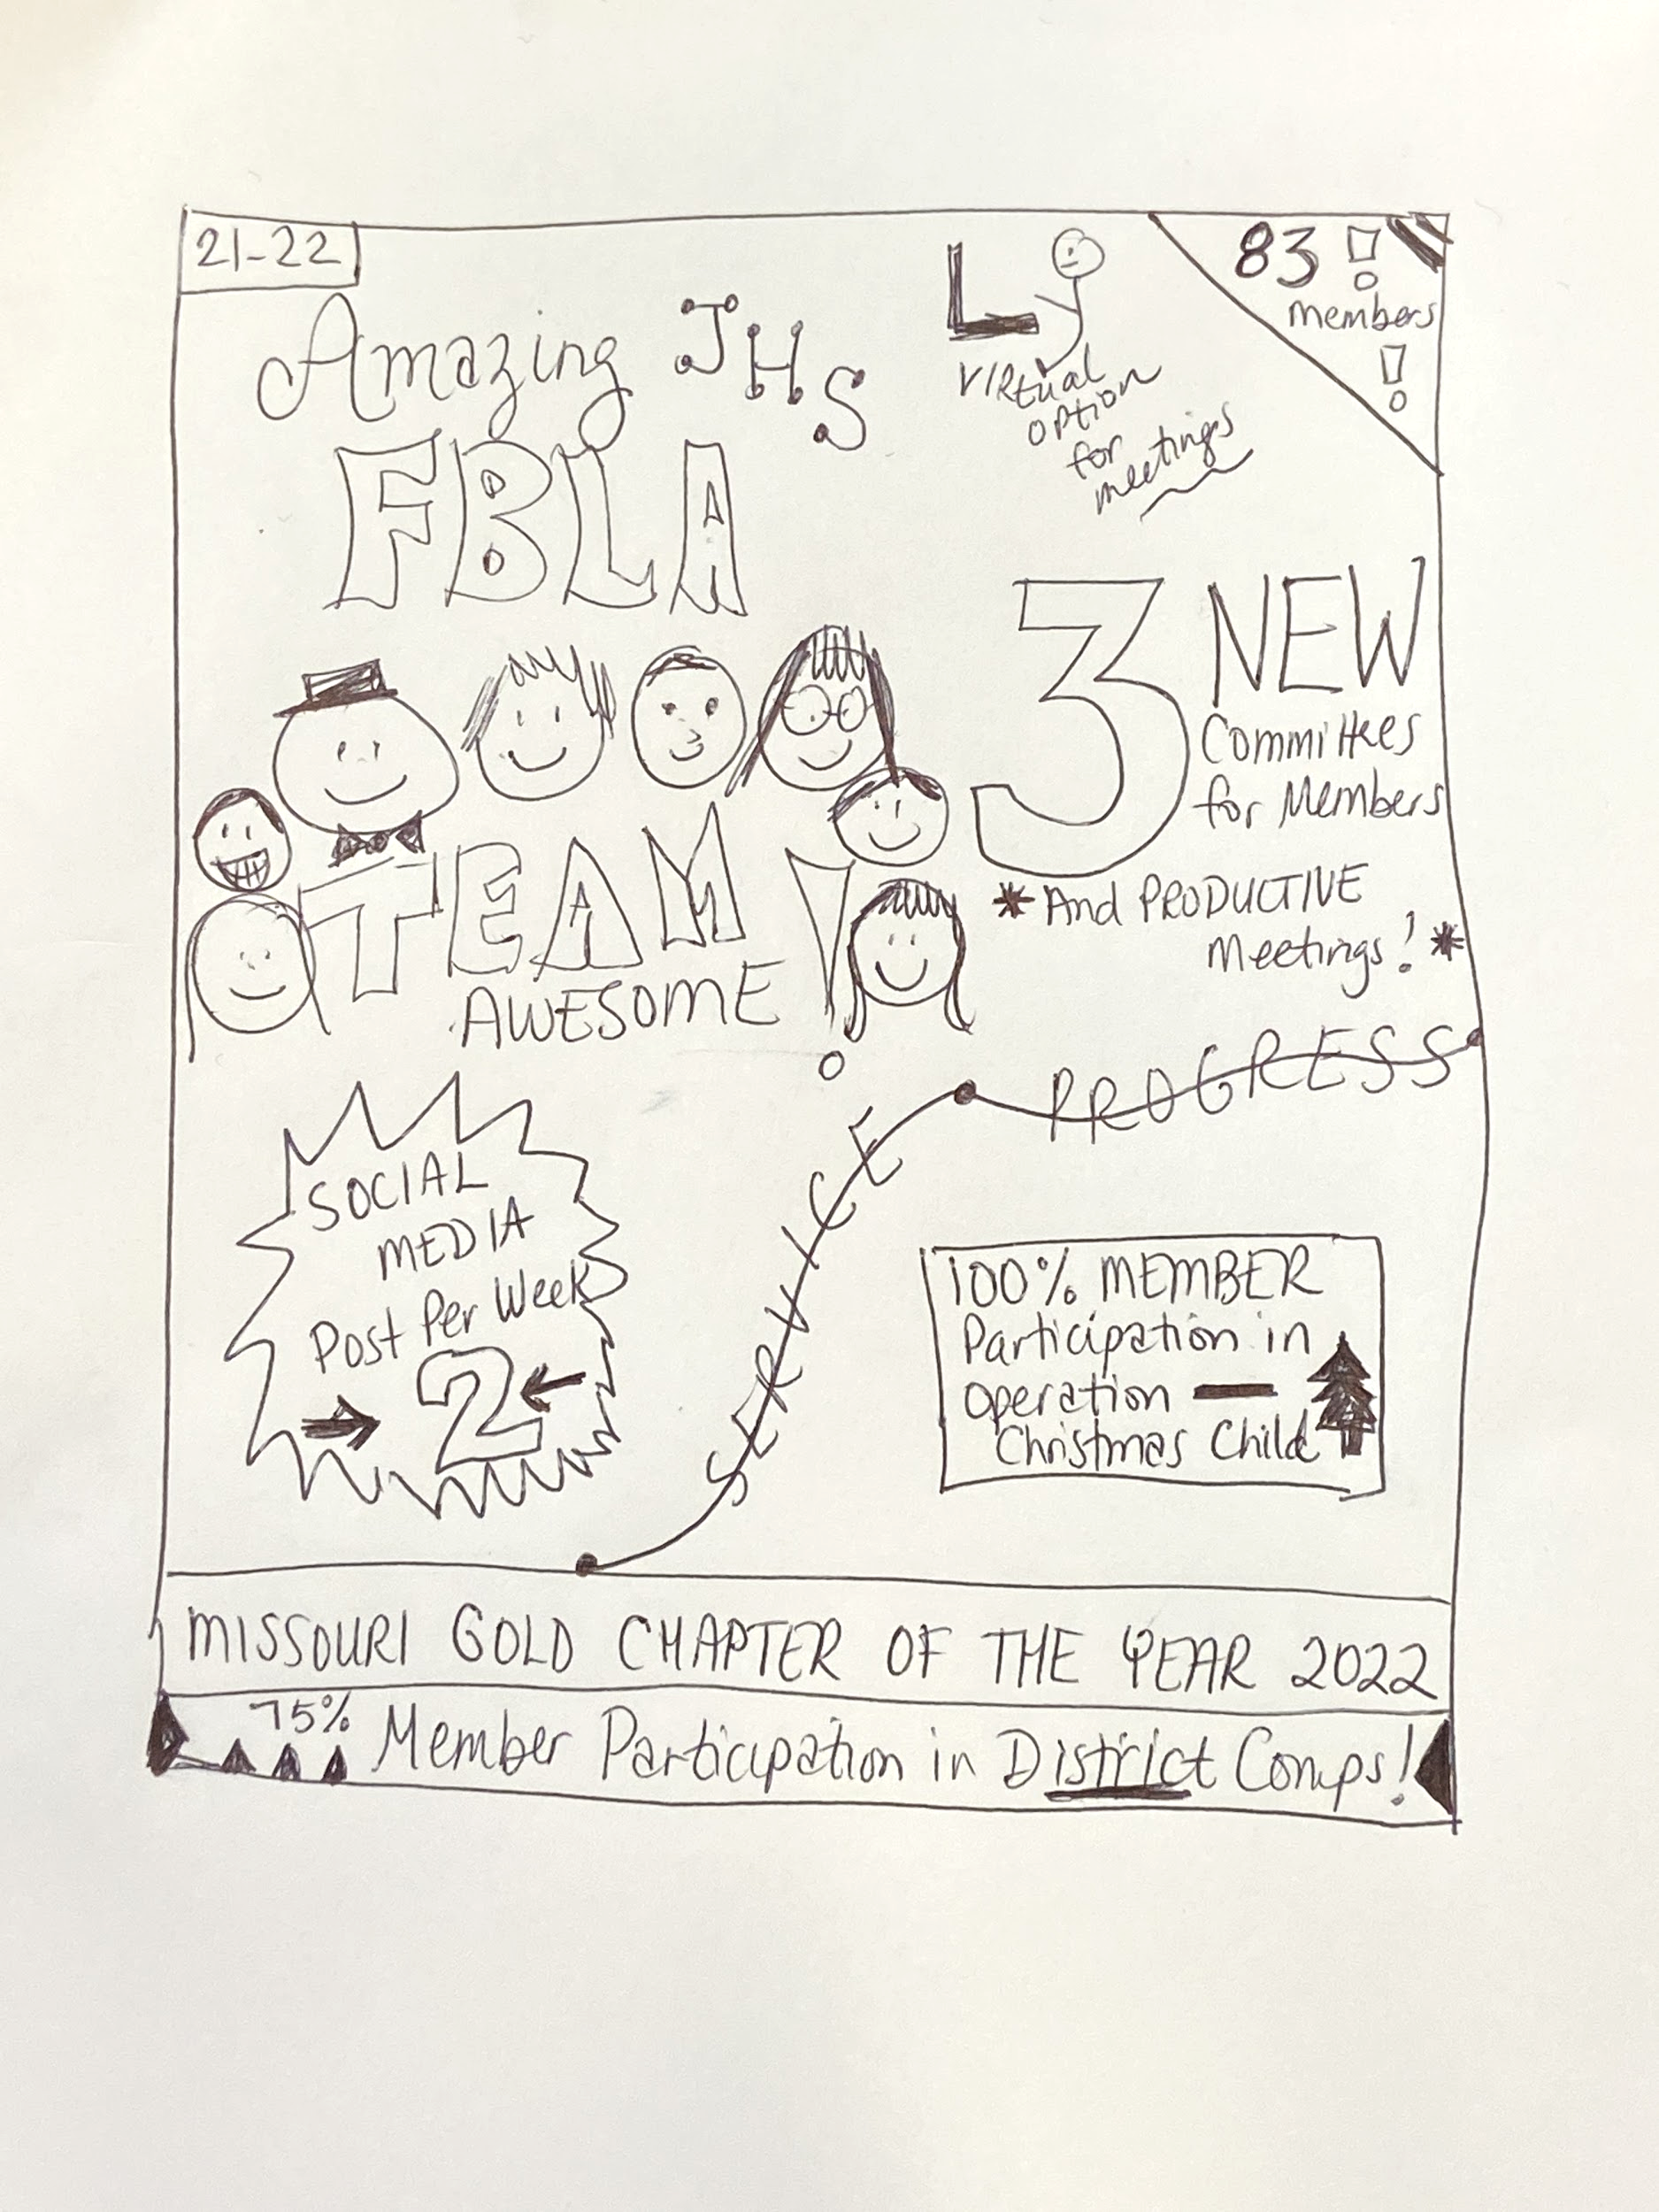 21-22
83!
members
!
Amazing JHS
FBLA
Virtual
option
for
meetings
3 NEW
Committees
for Members
*And PRODUCTIVE
Meetings!*
TEAM!
AWESOME
PROGRESS
SERVICE
SOCIAL
MEDIA
Post Per Week
2
100% MEMBER
Participation in
operation —
Christmas Child
MISSOURI GOLD CHAPTER OF THE YEAR 2022
75% Member Participation in District Comps!